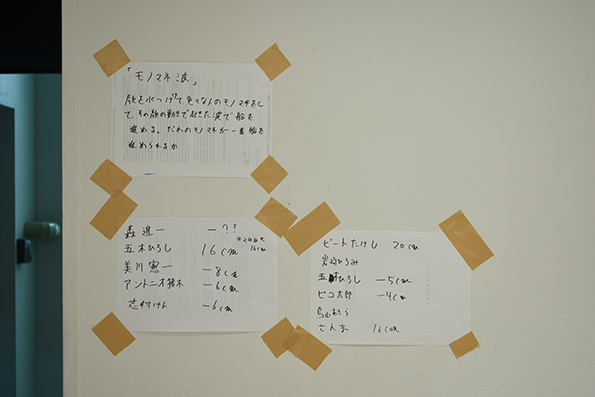 「モノマネ波」
顔を水つけて色々な人のモノマネをし
て、その顔の動きで起きた波で船を
進める。だれのモノマネが一番船を
進められるか
森進一 ー ??
五木ひろし 16cm ※2回目も 16cm
美川憲一 -8cm
アントニオ猪木 -6cm
志村けん -6cm
ビートたけし 20cm
岩崎ひろみ
五木ひろし -5cm
ピコ太郎 -4cm
さんま 16cm